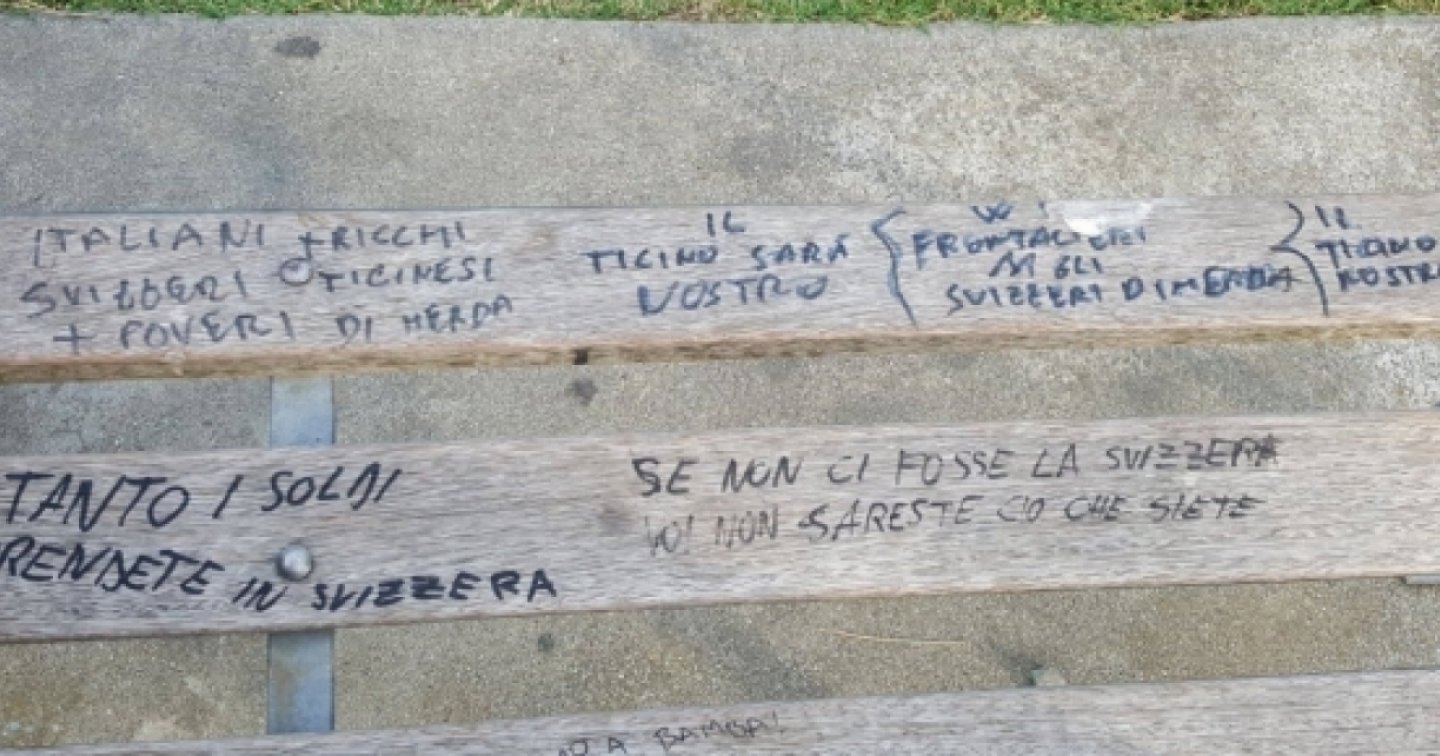 ITALIANI + RICCHI
SVIZZERI O TICINESI
+ POVERI DI MERDA
IL
TICINO SARÀ
NOSTRO
W I
FRONTALIERI
M GLI
SVIZZERI DI MERDA
IL
TICINO
NOSTR
TANTO I SOLDI
RENDETE IN SVIZZERA
SE NON CI FOSSE LA SVIZZERA
VOI NON SARESTE CIO CHE SIETE
A BAMBA!